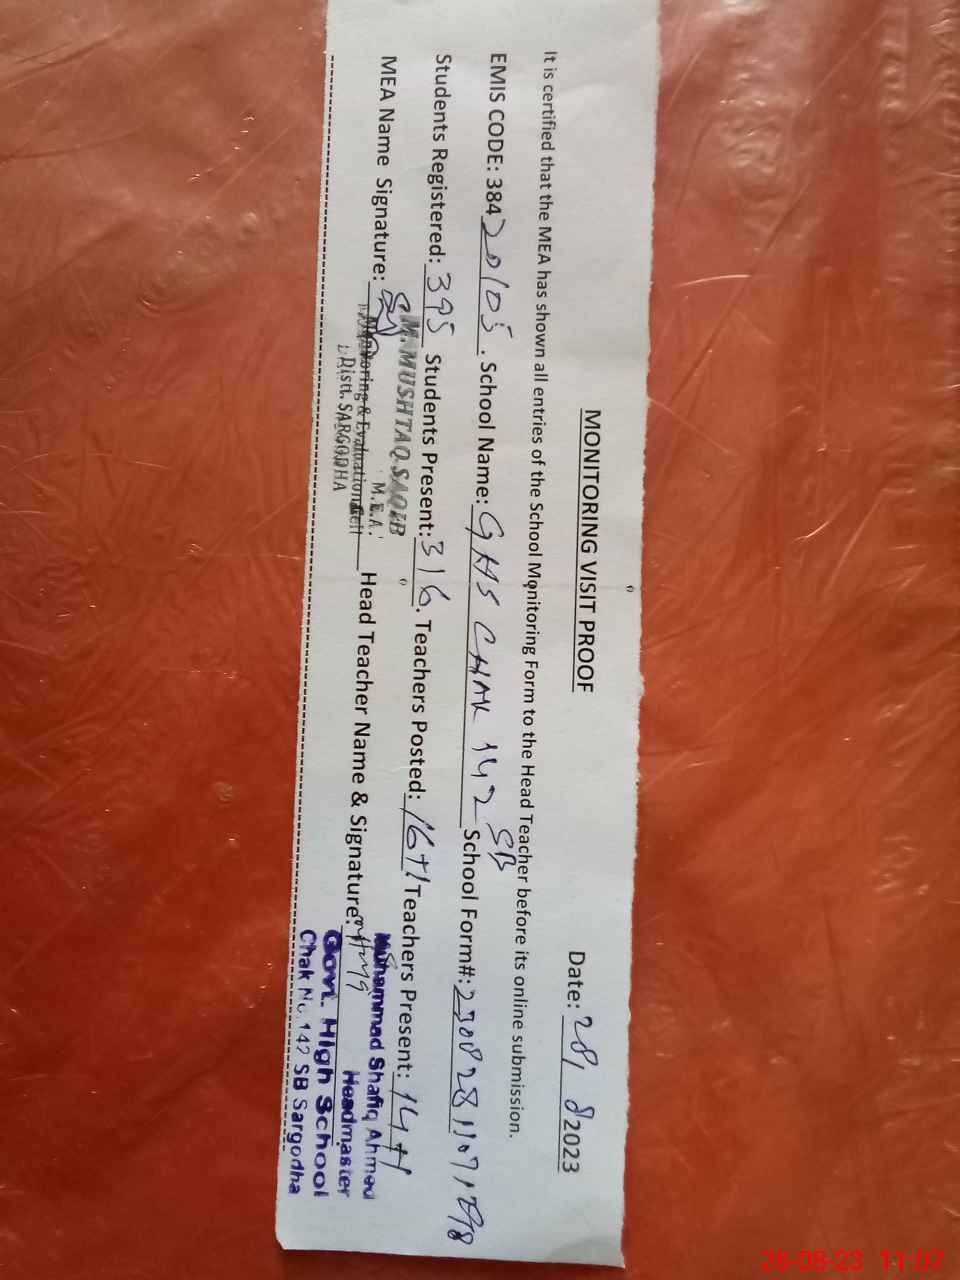 MONITORING VISIT PROOF
Date: 28, 8 2023
It is certified that the MEA has shown all entries of the School Monitoring Form to the Head Teacher before its online submission.
EMIS CODE: 38420105. School Name: GHS CHAK 142 SB School Form#:
Students Registered: 395 Students Present: 316. Teachers Posted: 16+1 Teachers Present: 14+1
MEA Name Signature: Head Teacher Name & Signature:
M. MUSHTAQ SAQIB
M.E.A.
Monitoring & Evaluation Cell
Distt. SARGODHA
Muhammad Shafiq Ahmed
Headmaster
Govt. High School
Chak No. 142 SB Sargodha
28-08-23 11:07